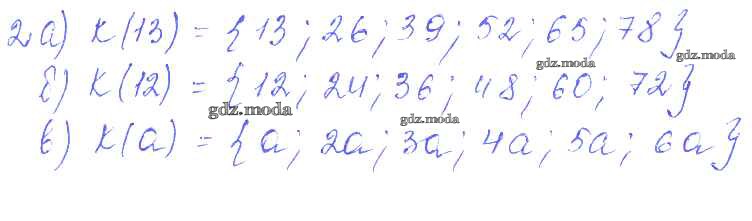 2 а) К(13) = {13; 26; 39; 52; 65; 78}
gdz.moda
gdz.moda
б) К(12) = {12; 24; 36; 48; 60; 72}
gdz.moda
gdz.moda
в) К(а) = {а; 2а; 3а; 4а; 5а; 6а}